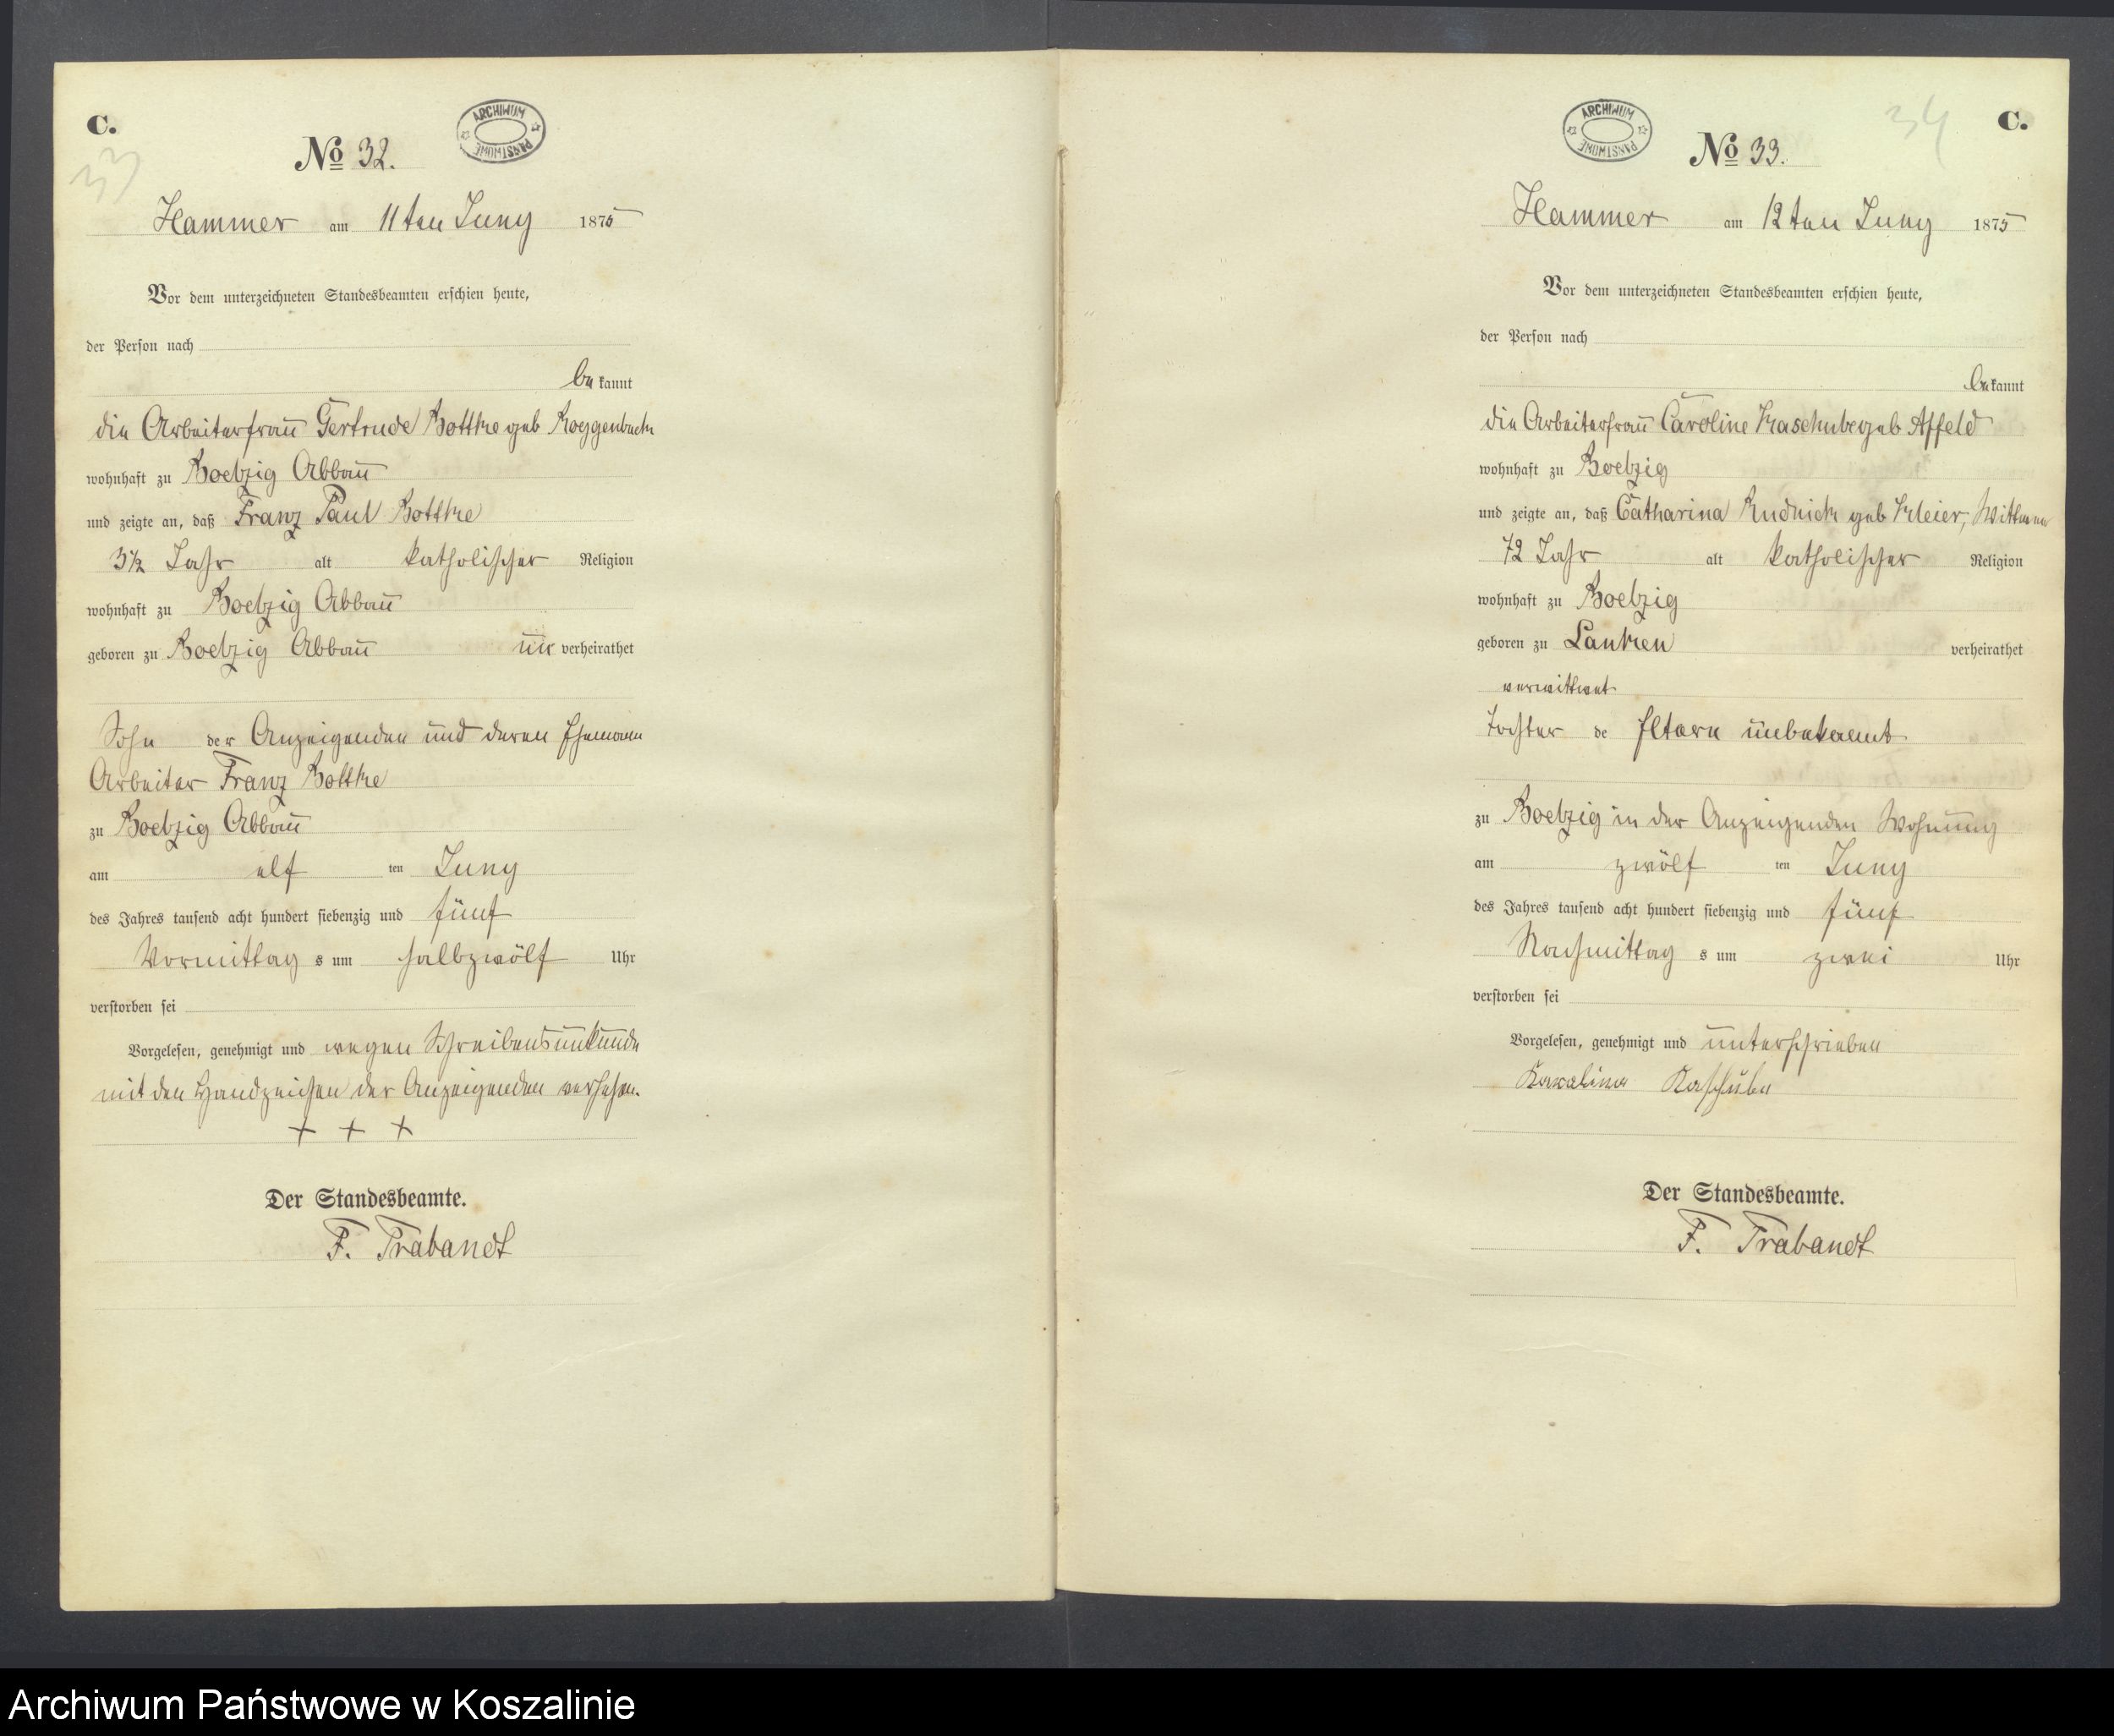 C.
33
No 32.
ARCHIWUM PAŃSTWOWE
Hammer am 11ten Juny 1875
Vor dem unterzeichneten Standesbeamten erschien heute,
der Person nach
bekannt
die Arbeiterfrau Gertrude Botthe geb Roggenbuck
wohnhaft zu Boelzig Abbau
und zeigte an, daß Franz Paul Botthe
3½ Jahr alt katholischer Religion
wohnhaft zu Boelzig Abbau
geboren zu Boelzig Abbau un verheirathet
Sohn der Anzeigenden und deren Ehemann
Arbeiter Franz Botthe
zu Boelzig Abbau
am elf ten Juny
des Jahres tausend acht hundert siebenzig und fünf
Vormittag s um halbzwölf Uhr
verstorben sei
Vorgelesen, genehmigt und wegen Schreibensunkunde
mit den Handzeichen der Anzeigenden versehen.
+ + +
Der Standesbeamte.
F. Trabandt
34
C.
No 33.
ARCHIWUM PAŃSTWOWE
Hammer am 12ten Juny 1875
Vor dem unterzeichneten Standesbeamten erschien heute,
der Person nach
bekannt
die Arbeiterfrau Caroline Kaschube geb Affeld
wohnhaft zu Boelzig
und zeigte an, daß Catharina Rudnick geb Kleier, Wittwe
72 Jahr alt katholischer Religion
wohnhaft zu Boelzig
geboren zu Lanken verheirathet
verwittwet
Tochter de Eltern unbekannt
zu Boelzig in der Anzeigenden Wohnung
am zwölf ten Juny
des Jahres tausend acht hundert siebenzig und fünf
Nachmittag s um zwei Uhr
verstorben sei
Vorgelesen, genehmigt und unterschrieben
Karoline Kaschube
Der Standesbeamte.
F. Trabandt
Archiwum Państwowe w Koszalinie